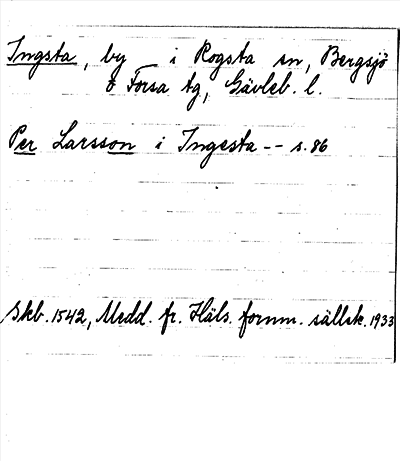 Ingsta, by i Rogsta sn, Bergsjö
o Forsa tg, Gävleb. l.
Per Larsson i Ingesta -- s. 86
Skb. 1542, Medd. fr. Häls. fornm. sällsk. 1933